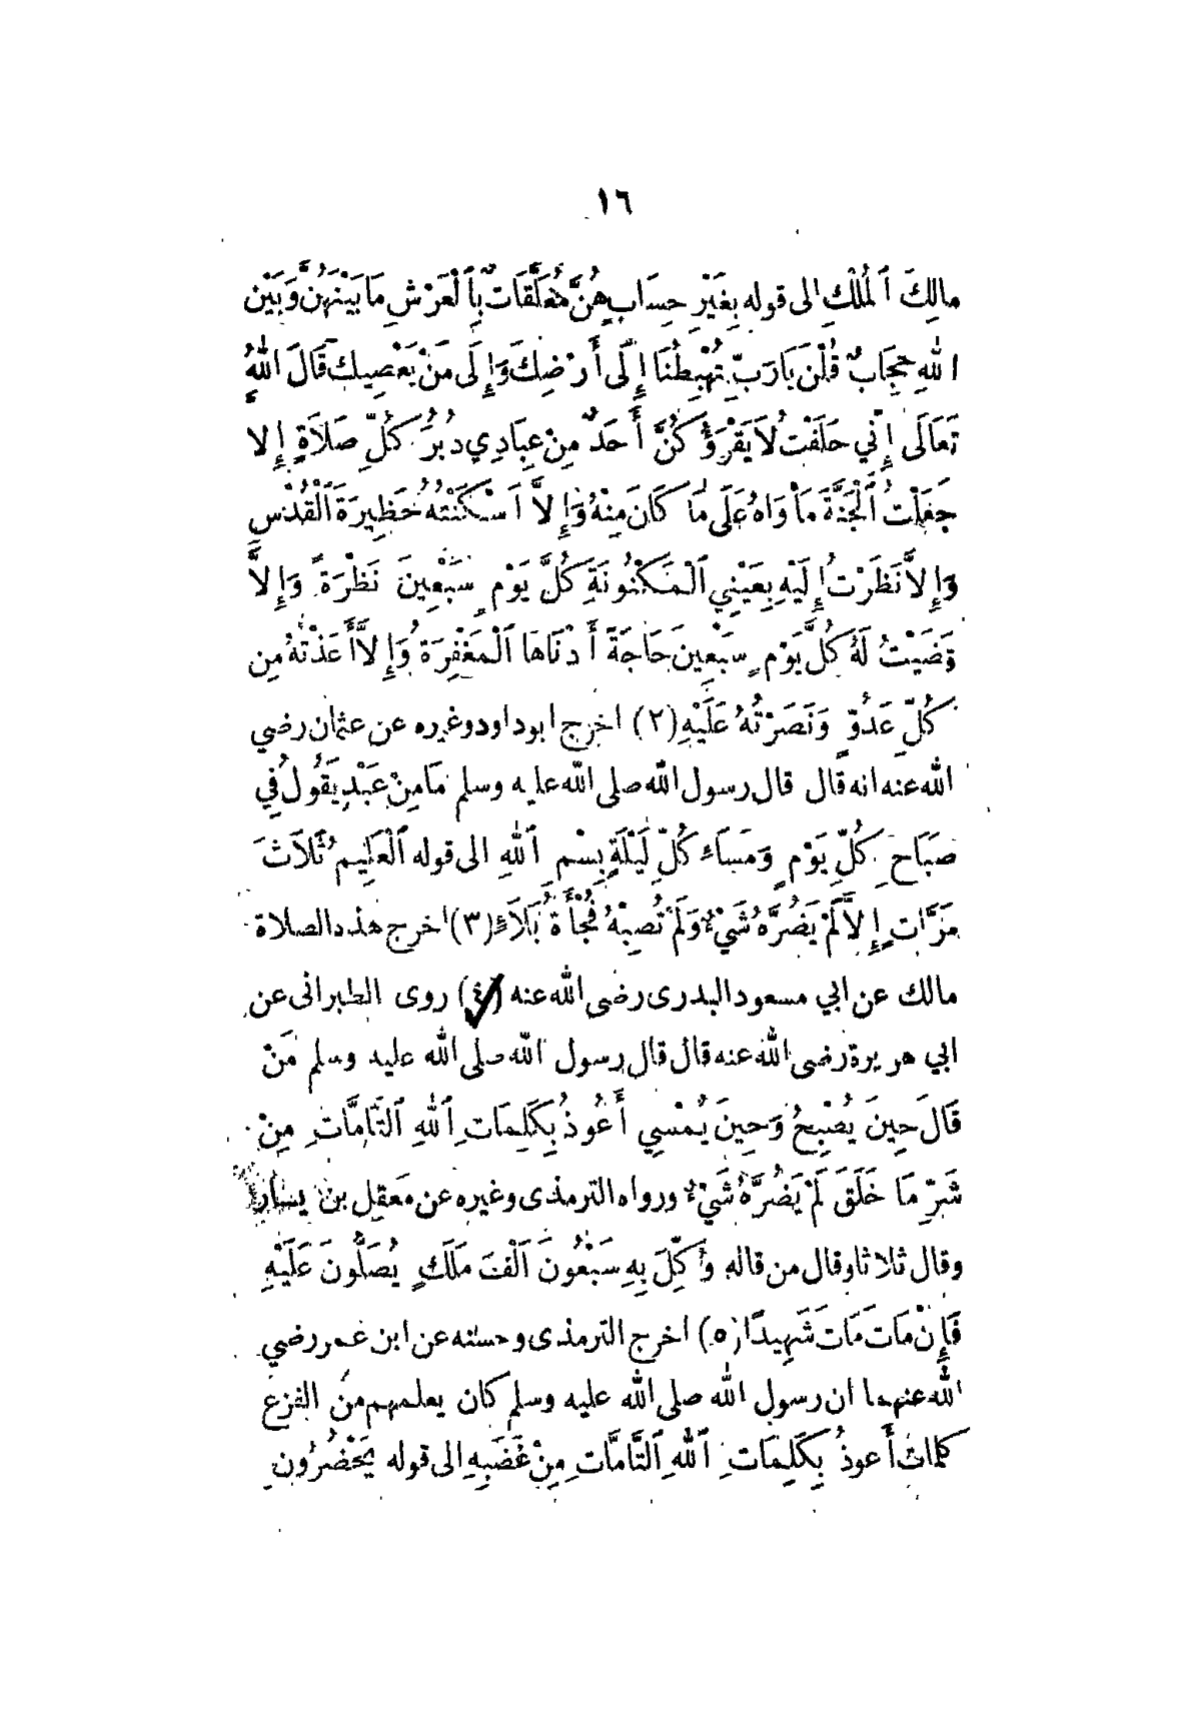 ١٦
مالِكَ ٱلْمُلْكِ الى قوله بِغَيْرِ حِسَابٍ هُنَّ مُعَلَّقَاتٌ بِٱلْعَرْشِ مَا بَيْنَهُنَّ وَبَيْن
اللهِ حِجَابٌ قُلْنَ يَارَبِّ تُهْبِطُنَا إِلَى أَرْضِكَ وَإِلَى مَنْ يَعْصِيكَ قَالَ اللهُ
تَعَالَى إِنِّي حَلَفْتُ لاَ يَقْرَؤُكُنَّ أَحَدٌ مِنْ عِبَادِي دُبُرَ كُلِّ صَلَاةٍ إِلا
جَعَلْتُ ٱلْجَنَّةَ مَأْوَاهُ عَلَى مَا كَانَ مِنْهُ وَإِلاَّ اَسْكَنْتُهُ حَظِيرَةَ ٱلْقُدْسِ
وَإِلاَّ نَظَرْتُ إِلَيْهِ بِعَيْنِي ٱلْمَكْنُونَةِ كُلَّ يَوْمٍ سَبْعِينَ نَظْرَةً وَإِلاَّ
قَضَيْتُ لَهُ كُلَّ يَوْمٍ سَبْعِينَ حَاجَةً أَدْنَاهَا ٱلْمَغْفِرَةُ وَإِلاَّ أَعَذْتُهُ مِن
كُلِّ عَدُوٍّ وَنَصَرْتُهُ عَلَيْهِ (٢) اخرج ابو داود وغيره عن عثمان رضي
الله عنه انه قال قال رسول الله صلى الله عليه وسلم مَا مِنْ عَبْدٍ يَقُولُ فِي
صَبَاحِ كُلِّ يَوْمٍ وَمَسَاءِ كُلِّ لَيْلَةٍ بِسْمِ ٱللهِ الى قوله ٱلْعَلِيمُ ثَلاَثَ
مَرَّاتٍ إِلاَّ لَمْ يَضُرَّهُ شَيْءٌ وَلَمْ تُصِبْهُ فُجْأَةُ بَلاَءٍ (٣) اخرج هذه الصلاة
مالك عن ابي مسعود البدرى رضى الله عنه (٤) روى الطبرانى عن
ابي هريرة رضى الله عنه قال قال رسول الله صلى الله عليه وسلم مَنْ
قَالَ حِينَ يُصْبِحُ وَحِينَ يُمْسِي أَعُوذُ بِكَلِمَاتِ ٱللهِ ٱلتَّامَّاتِ مِنْ
شَرِّ مَا خَلَقَ لَمْ يَضُرَّهُ شَيْءٌ ورواه الترمذى وغيره عن مَعقِل بن يسار
وقال ثلاثا وقال من قاله وُكِّلَ بِهِ سَبْعُونَ أَلْفَ مَلَكٍ يُصَلُّونَ عَلَيْهِ
فَإِنْ مَاتَ مَاتَ شَهِيدًا (٥) اخرج الترمذى وحسنه عن ابن عمر رضي
الله عنهما ان رسول الله صلى الله عليه وسلم كان يعلمهم من الفزع
كلمات أَعوذُ بِكَلِمَاتِ ٱللهِ ٱلتَّامَّاتِ مِنْ غَضَبِهِ الى قوله يَحْضُرُونِ